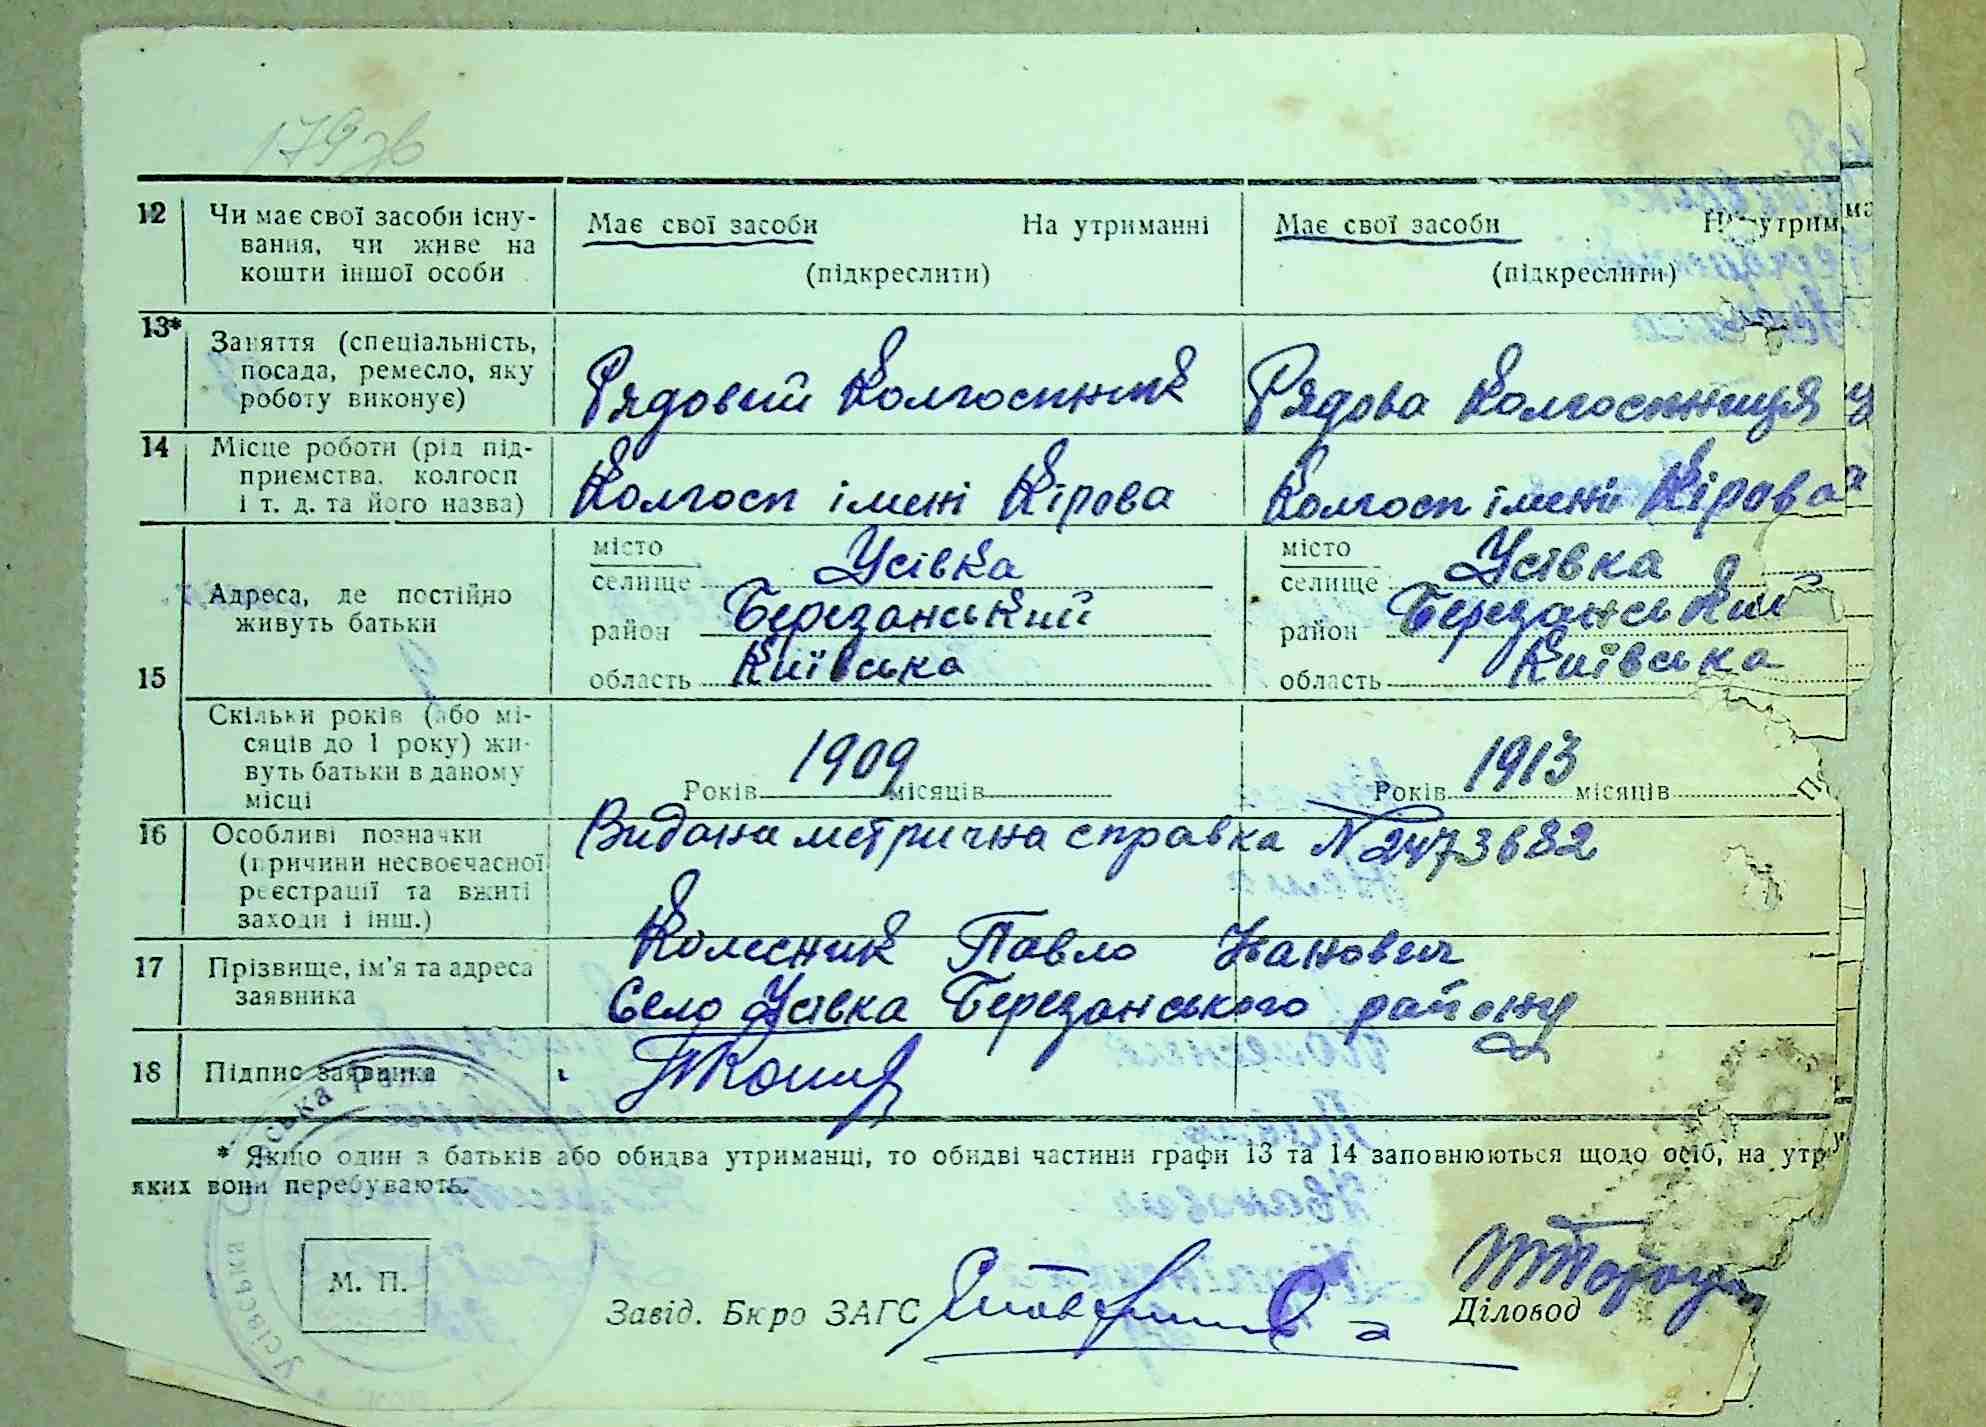 179зв
12 Чи має свої засоби існу-
вання, чи живе на
кошти іншої особи
Має свої засоби На утриманні
(підкреслити)
Має свої засоби На утрим
(підкреслити)
13* Заняття (спеціальність,
посада, ремесло, яку
роботу виконує)
Рядовий Колгоспник
Рядова Колгоспниця
14 Місце роботи (рід під-
приємства, колгосп
і т. д. та його назва)
Колгосп імені Кірова
Колгосп імені Кірова
15 Адреса, де постійно
живуть батьки
місто
селище Усівка
район Березанський
область Київська
місто
селище Усівка
район Березанський
область Київська
Скільки років (або мі-
сяців до 1 року) жи-
вуть батьки в даному
місці
Років 1909 місяців
Років 1913 місяців
16 Особливі позначки
(причини несвоєчасної
реєстрації та вжиті
заходи і інш.)
Видана метрична справка № 2473682
17 Прізвище, ім'я та адреса
заявника
Колесник Павло Іванович
Село Усівка Березанського району
18 Підпис заявника
* Якщо один з батьків або обидва утриманці, то обидві частини графи 13 та 14 заповнюються щодо осіб, на утр
яких вони перебувають.
М. П.
Завід. Бюро ЗАГС
Діловод